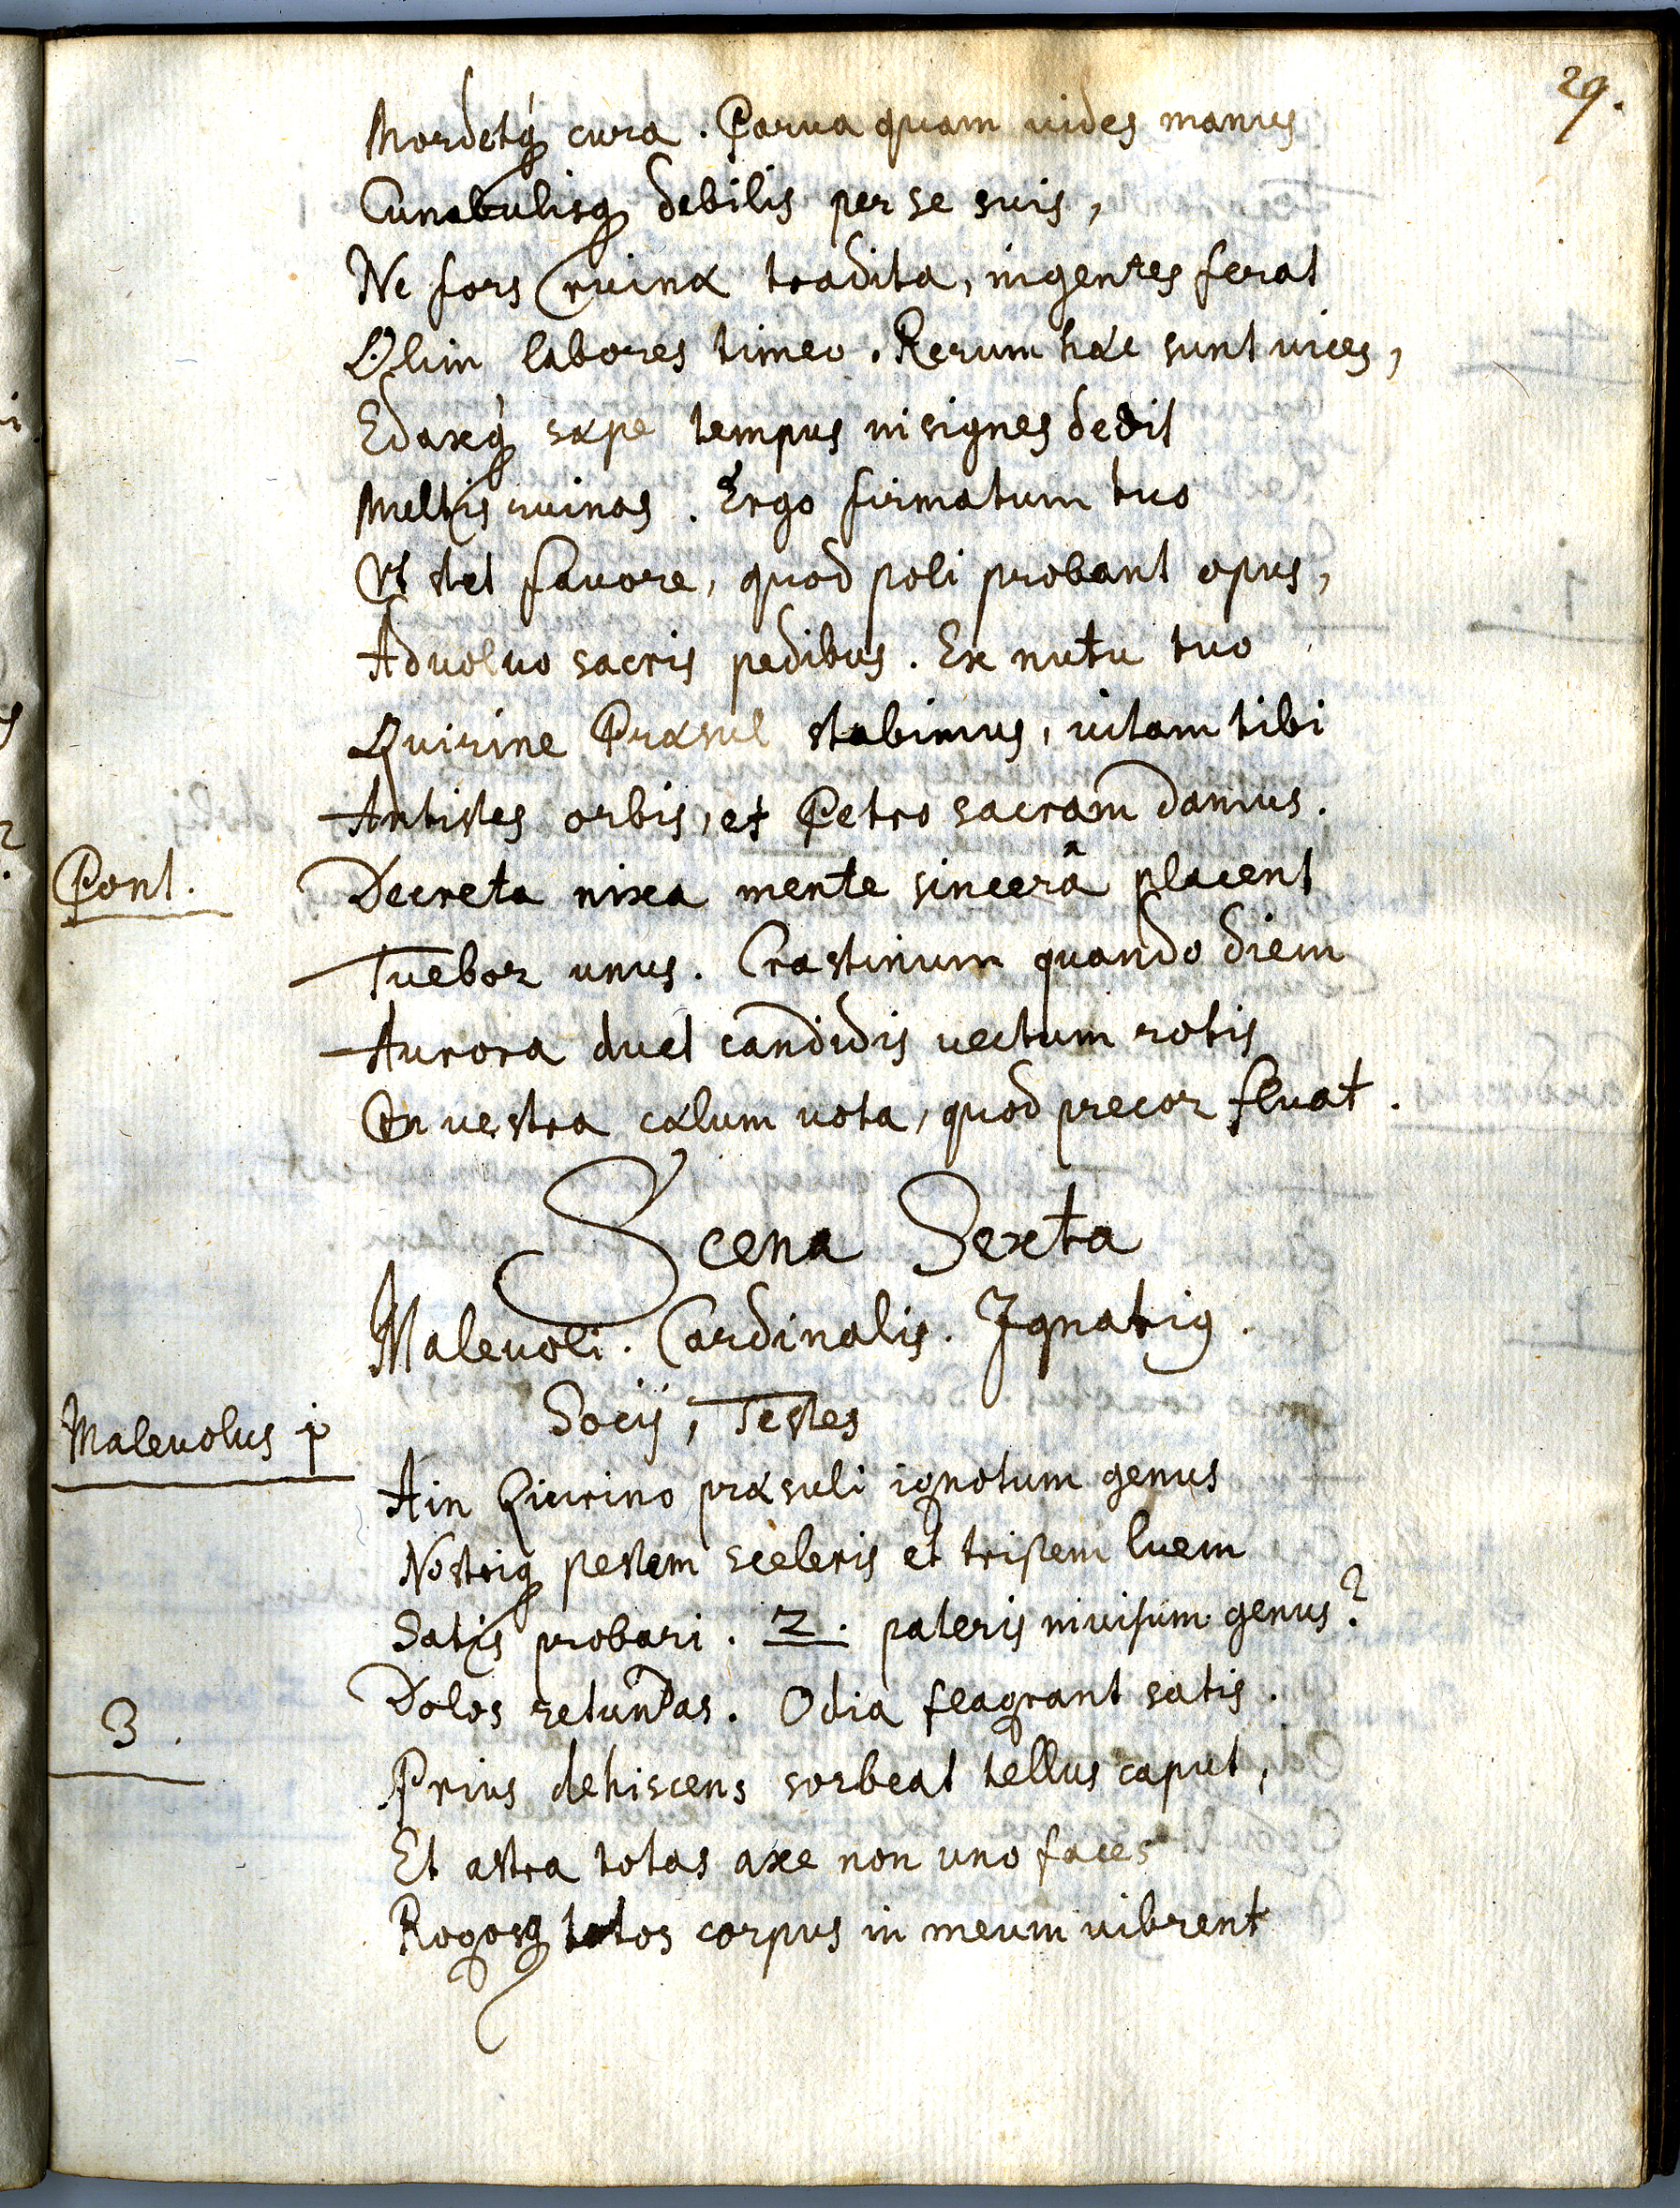 29.
Mordetq́ cura. Parua quam uides manus
Cunabulisq debilis per se suis,
Ne fors ruinæ tradita, ingentes ferat
Olim labores timeo. Rerum hæc sunt uices,
Edaxq́ sæpe tempus insignes dedit
Multis ruinas. Ergo firmatum tuo
Vt stet fauore, quod poli probant opus,
Aduoluo sacris pedibus. Ex nutu tuo
Quirine Præsul stabimus, uitam tibi
Antistes orbis, et Petro sacram damus.
Pont. Decreta nixa mente sincerâ placent
Tuebor unus. Crastinum quando diem
Aurora duet candidis uectum rotis
En uestra cælum uota, quod precor feuat.
Scena Sexta
Maleuoli. Cardinalis. Ignatiꝰ.
Socij, Testes
Maleuolus j Ain Quirino præsuli ignotum genus
Nostriq pestem sceleris et tristem luem
Satis probari. 2. pateris inuisum genus?
Dolos retundas. Odia flagrant satis.
3. Prius dehiscens sorbeat tellus caput,
Et astra totas axe non uno faces
Rogosq totos corpus in meum uibrent